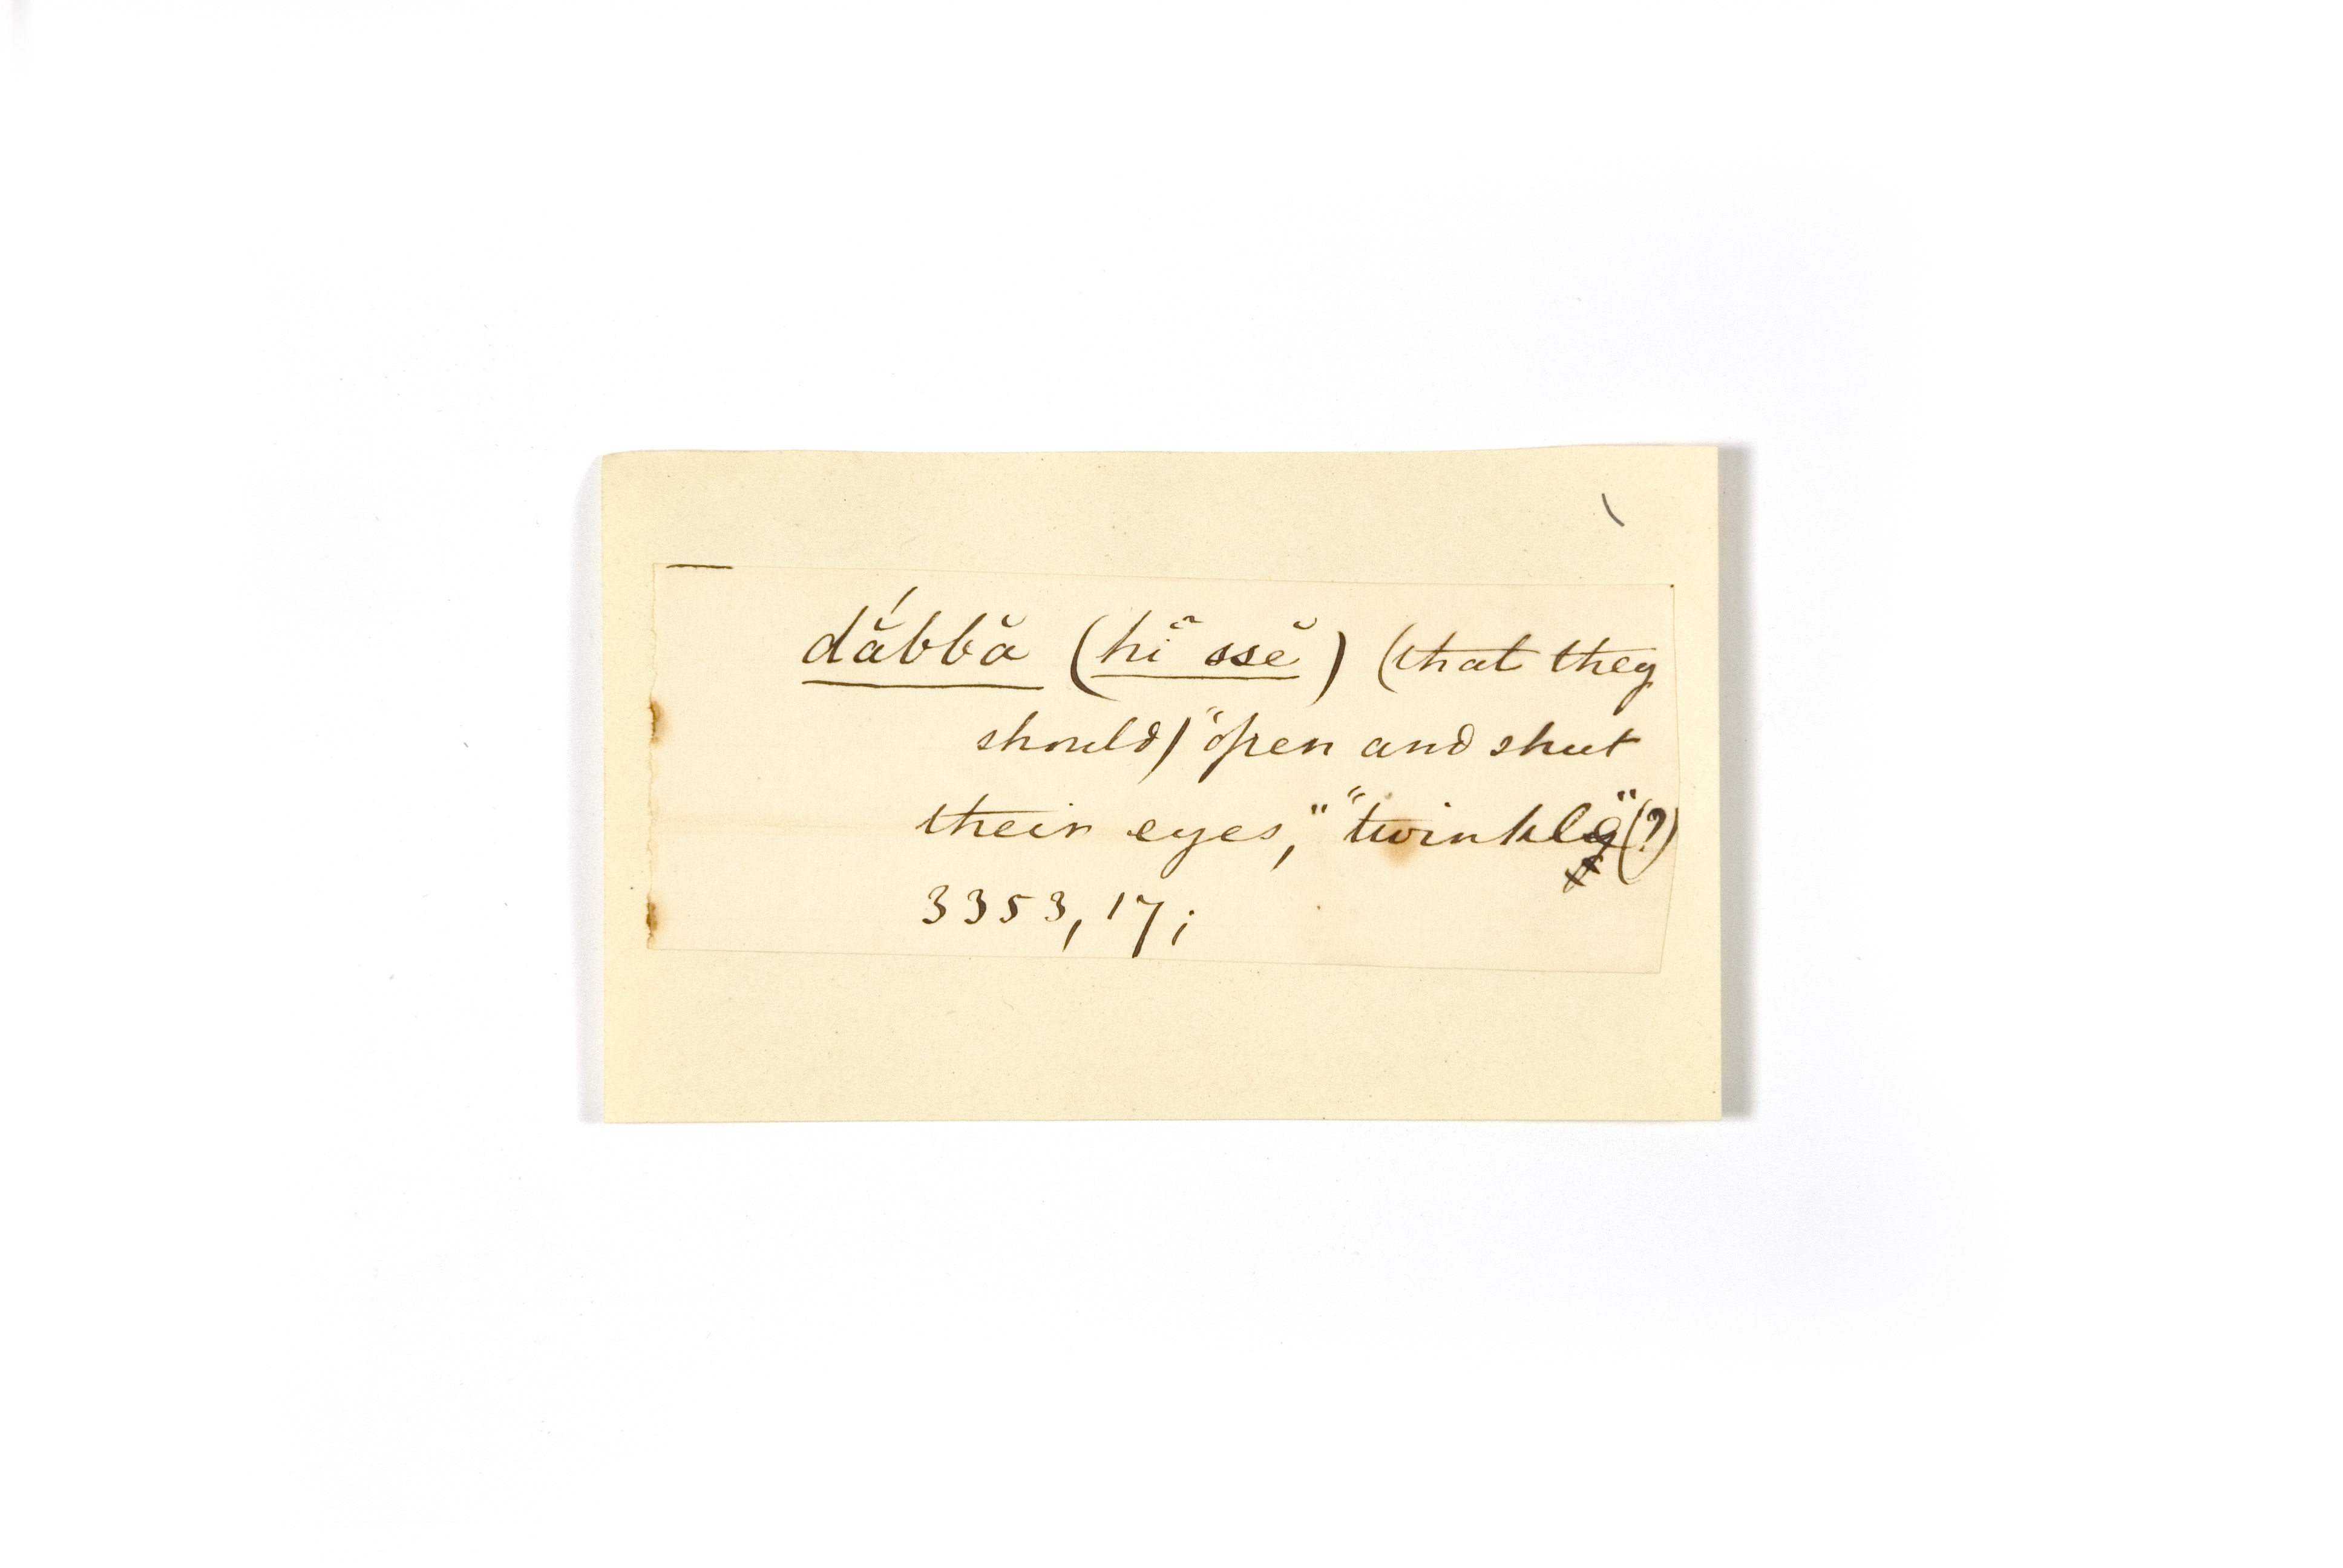 dắbbă (hĭ̃ ssĕ) (that they
should) "open and shut
their eyes," "twinkle" (?)
3353, 17;